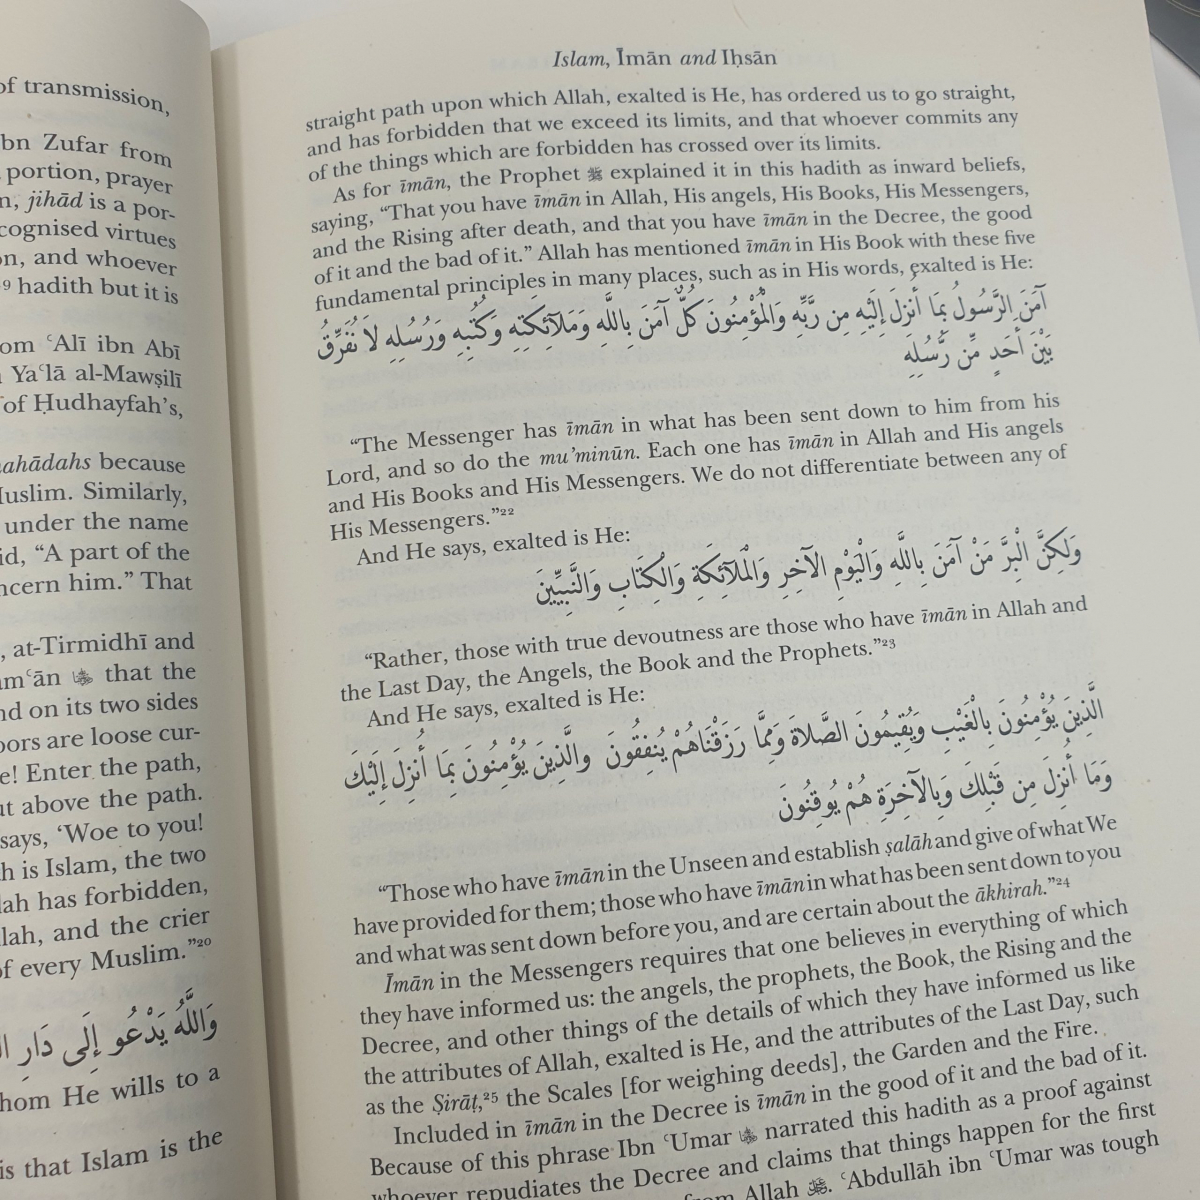 of transmission,
ibn Zufar from
portion, prayer
n, jihād is a por-
cognised virtues
on, and whoever
¹⁹ hadith but it is
om ʿAlī ibn Abī
Yaʿlā al-Mawṣilī
of Ḥudhayfah's,
ahādahs because
Muslim. Similarly,
under the name
id, “A part of the
ncern him.” That
, at-Tirmidhī and
amʿān that the
nd on its two sides
oors are loose cur-
e! Enter the path,
ut above the path.
says, ‘Woe to you!
h is Islam, the two
lah has forbidden,
lah, and the crier
of every Muslim.”²⁰
وَاللَّهُ يَدْعُو إِلَى دَارِ
hom He wills to a
is that Islam is the
Islam, Īmān and Iḥsān
straight path upon which Allah, exalted is He, has ordered us to go straight,
and has forbidden that we exceed its limits, and that whoever commits any
of the things which are forbidden has crossed over its limits.
As for īmān, the Prophet ﷺ explained it in this hadith as inward beliefs,
saying, “That you have īmān in Allah, His angels, His Books, His Messengers,
and the Rising after death, and that you have īmān in the Decree, the good
of it and the bad of it.” Allah has mentioned īmān in His Book with these five
fundamental principles in many places, such as in His words, exalted is He:
آمَنَ الرَّسُولُ بِمَا أُنزِلَ إِلَيْهِ مِن رَّبِّهِ وَالْمُؤْمِنُونَ كُلٌّ آمَنَ بِاللَّهِ وَمَلآئِكَتِهِ وَكُتُبِهِ وَرُسُلِهِ لاَ نُفَرِّقُ
بَيْنَ أَحَدٍ مِّن رُّسُلِهِ
“The Messenger has īmān in what has been sent down to him from his
Lord, and so do the mu’minūn. Each one has īmān in Allah and His angels
and His Books and His Messengers. We do not differentiate between any of
His Messengers.”²²
And He says, exalted is He:
وَلَكِنَّ الْبِرَّ مَنْ آمَنَ بِاللَّهِ وَالْيَوْمِ الآخِرِ وَالْمَلآئِكَةِ وَالْكِتَابِ وَالنَّبِيِّينَ
“Rather, those with true devoutness are those who have īmān in Allah and
the Last Day, the Angels, the Book and the Prophets.”²³
And He says, exalted is He:
الَّذِينَ يُؤْمِنُونَ بِالْغَيْبِ وَيُقِيمُونَ الصَّلاةَ وَمِمَّا رَزَقْنَاهُمْ يُنفِقُونَ والَّذِينَ يُؤْمِنُونَ بِمَا أُنزِلَ إِلَيْكَ
وَمَا أُنزِلَ مِن قَبْلِكَ وَبِالآخِرَةِ هُمْ يُوقِنُونَ
“Those who have īmān in the Unseen and establish ṣalāh and give of what We
have provided for them; those who have īmān in what has been sent down to you
and what was sent down before you, and are certain about the ākhirah.”²⁴
Īmān in the Messengers requires that one believes in everything of which
they have informed us: the angels, the prophets, the Book, the Rising and the
Decree, and other things of the details of which they have informed us like
the attributes of Allah, exalted is He, and the attributes of the Last Day, such
as the Ṣirāṭ,²⁵ the Scales [for weighing deeds], the Garden and the Fire.
Included in īmān in the Decree is īmān in the good of it and the bad of it.
Because of this phrase Ibn ʿUmar narrated this hadith as a proof against
whoever repudiates the Decree and claims that things happen for the first
from Allah ﷻ. ʿAbdullāh ibn ʿUmar was tough